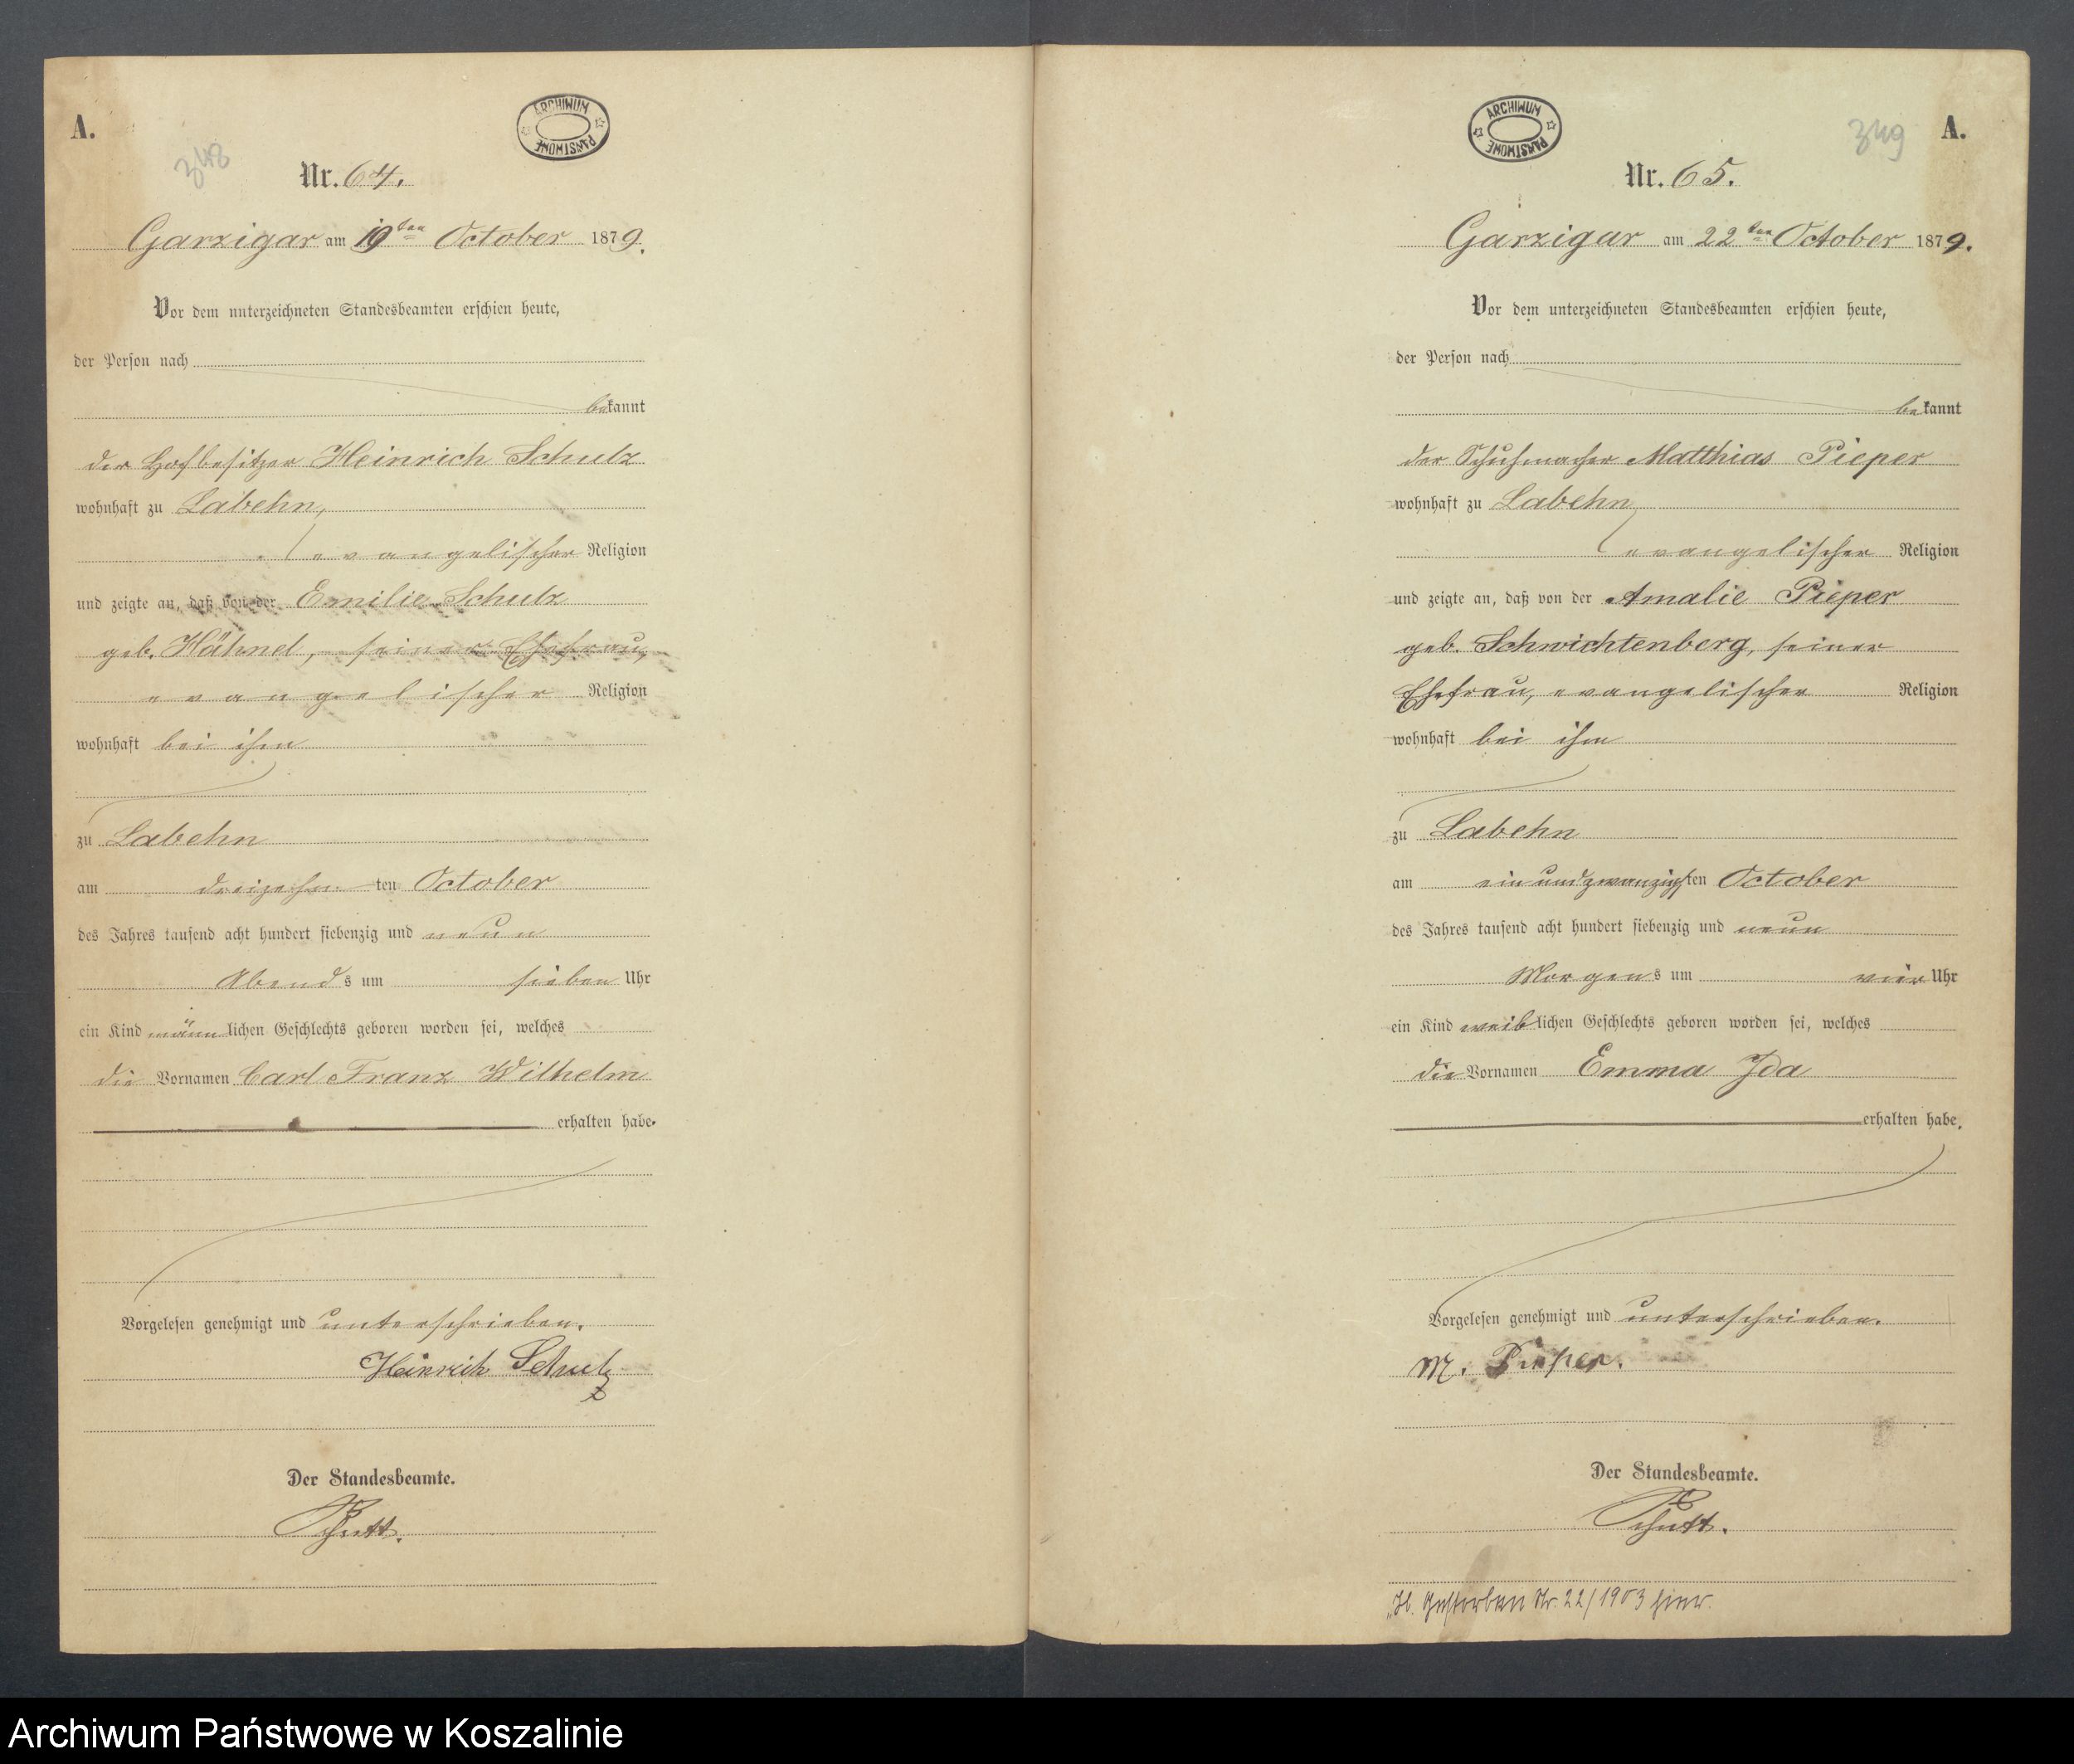 A.
ARCHIWUM PAŃSTWOWE
348
Nr. 64.
Garzigar am 19ten October 1879.
Vor dem unterzeichneten Standesbeamten erschien heute,
der Person nach
bekannt
der Hofbesitzer Heinrich Schulz
wohnhaft zu Labehn,
evangelischer Religion
und zeigte an, daß von der Emilie Schulz
geb. Hähnel, seiner Ehefrau,
evangelischer Religion
wohnhaft bei ihm
zu Labehn
am dreizehn ten October
des Jahres tausend acht hundert siebenzig und neun
Abends um sieben Uhr
ein Kind männlichen Geschlechts geboren worden sei, welches
die Vornamen Carl Franz Wilhelm
erhalten habe.
Vorgelesen genehmigt und unterschrieben.
Heinrich Schulz
Der Standesbeamte.
ARCHIWUM PAŃSTWOWE
349
A.
Nr. 65.
Garzigar am 22ten October 1879.
Vor dem unterzeichneten Standesbeamten erschien heute,
der Person nach
bekannt
der Schuhmacher Matthias Pieper
wohnhaft zu Labehn
evangelischer Religion
und zeigte an, daß von der Amalie Pieper
geb. Schwichtenberg, seiner
Ehefrau, evangelischer Religion
wohnhaft bei ihm
zu Labehn
am einundzwanzigsten October
des Jahres tausend acht hundert siebenzig und neun
Morgens um vier Uhr
ein Kind weiblichen Geschlechts geboren worden sei, welches
die Vornamen Emma Ida
erhalten habe.
Vorgelesen genehmigt und unterschrieben.
M. Pieper.
Der Standesbeamte.
Gestorben Nr. 22/1903 hier.
Archiwum Państwowe w Koszalinie